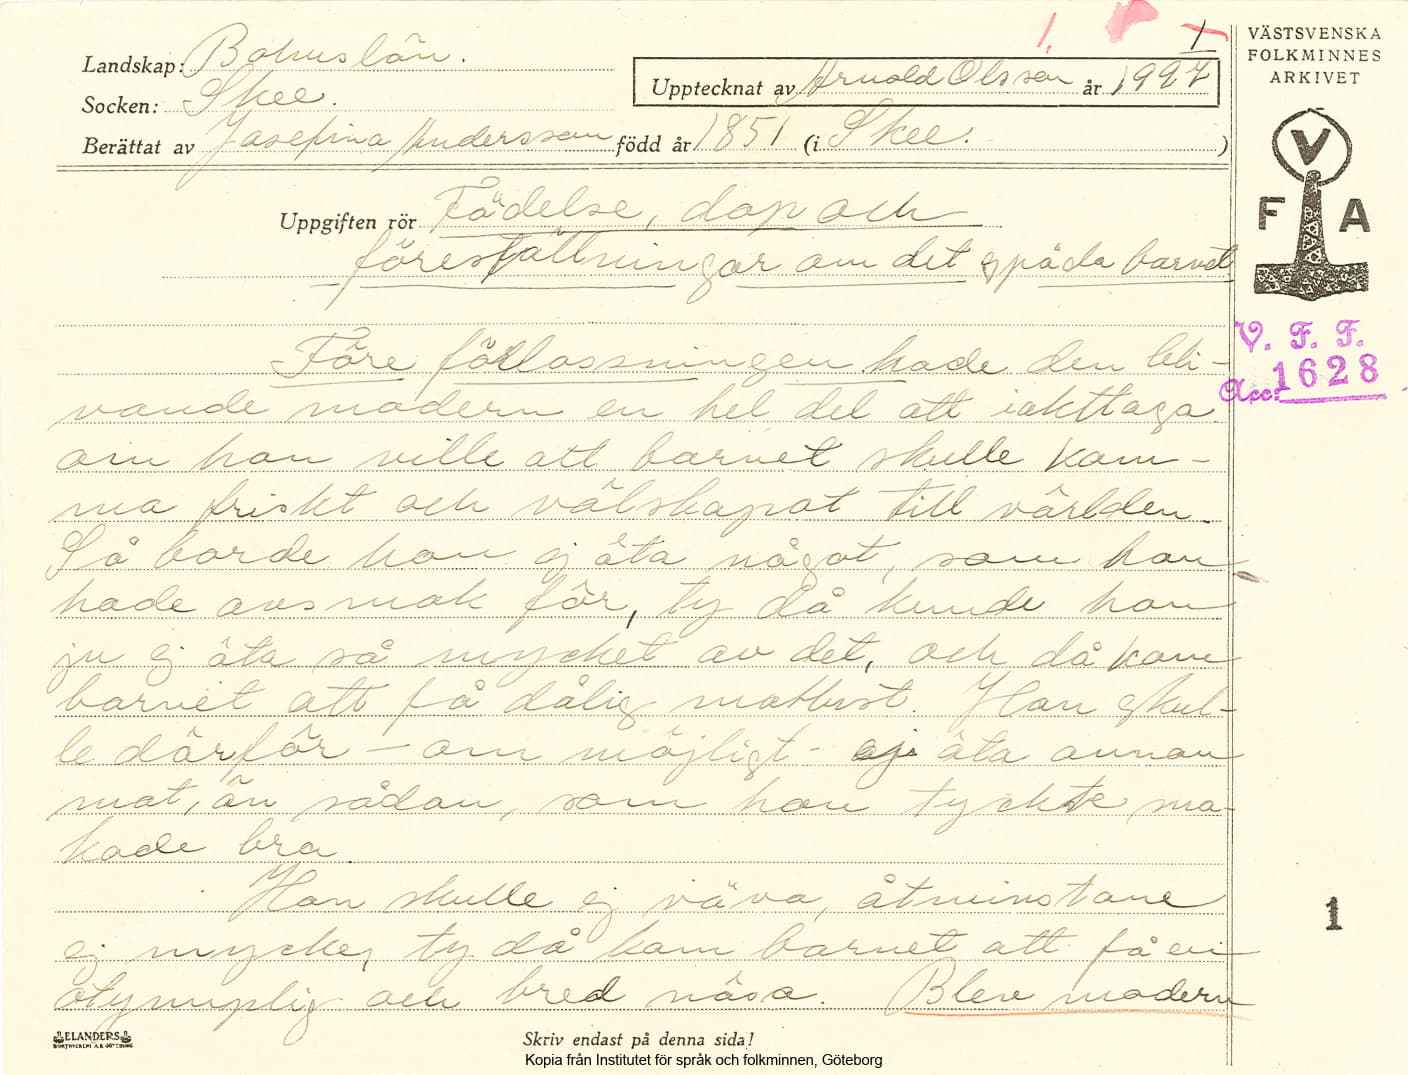 1.
1
VÄSTSVENSKA
FOLKMINNES
ARKIVET
Landskap: Bohuslän.
Upptecknat av Arnold Olsson år 1927
Socken: Skee.
Berättat av Josefina Andersson född år 1851 (i Skee. )
V
F A
Uppgiften rör Födelse, dop och
föreställningar om det späda barnet
V. F. F.
Acc: 1628
Före förlossningen hade den bli-
vande modern en hel del att iakttaga
om hon ville att barnet skulle kom-
ma friskt och välskapat till världen.
Så borde hon ej äta något, som hon
hade avsmak för, ty då kunde hon
ju ej äta så mycket av det, och då kom
barnet att få dålig matlust. Hon skul-
le därför – om möjligt – ej äta annan
mat, än sådan, som hon tyckte sma-
kade bra.
Hon skulle ej väva, åtminstone
ej mycke, ty då kom barnet att få en
otymplig och bred näsa. Blev modern
1
ELANDERS
BOKTRYCKERI A.B. GÖTEBORG
Skriv endast på denna sida!
Kopia från Institutet för språk och folkminnen, Göteborg